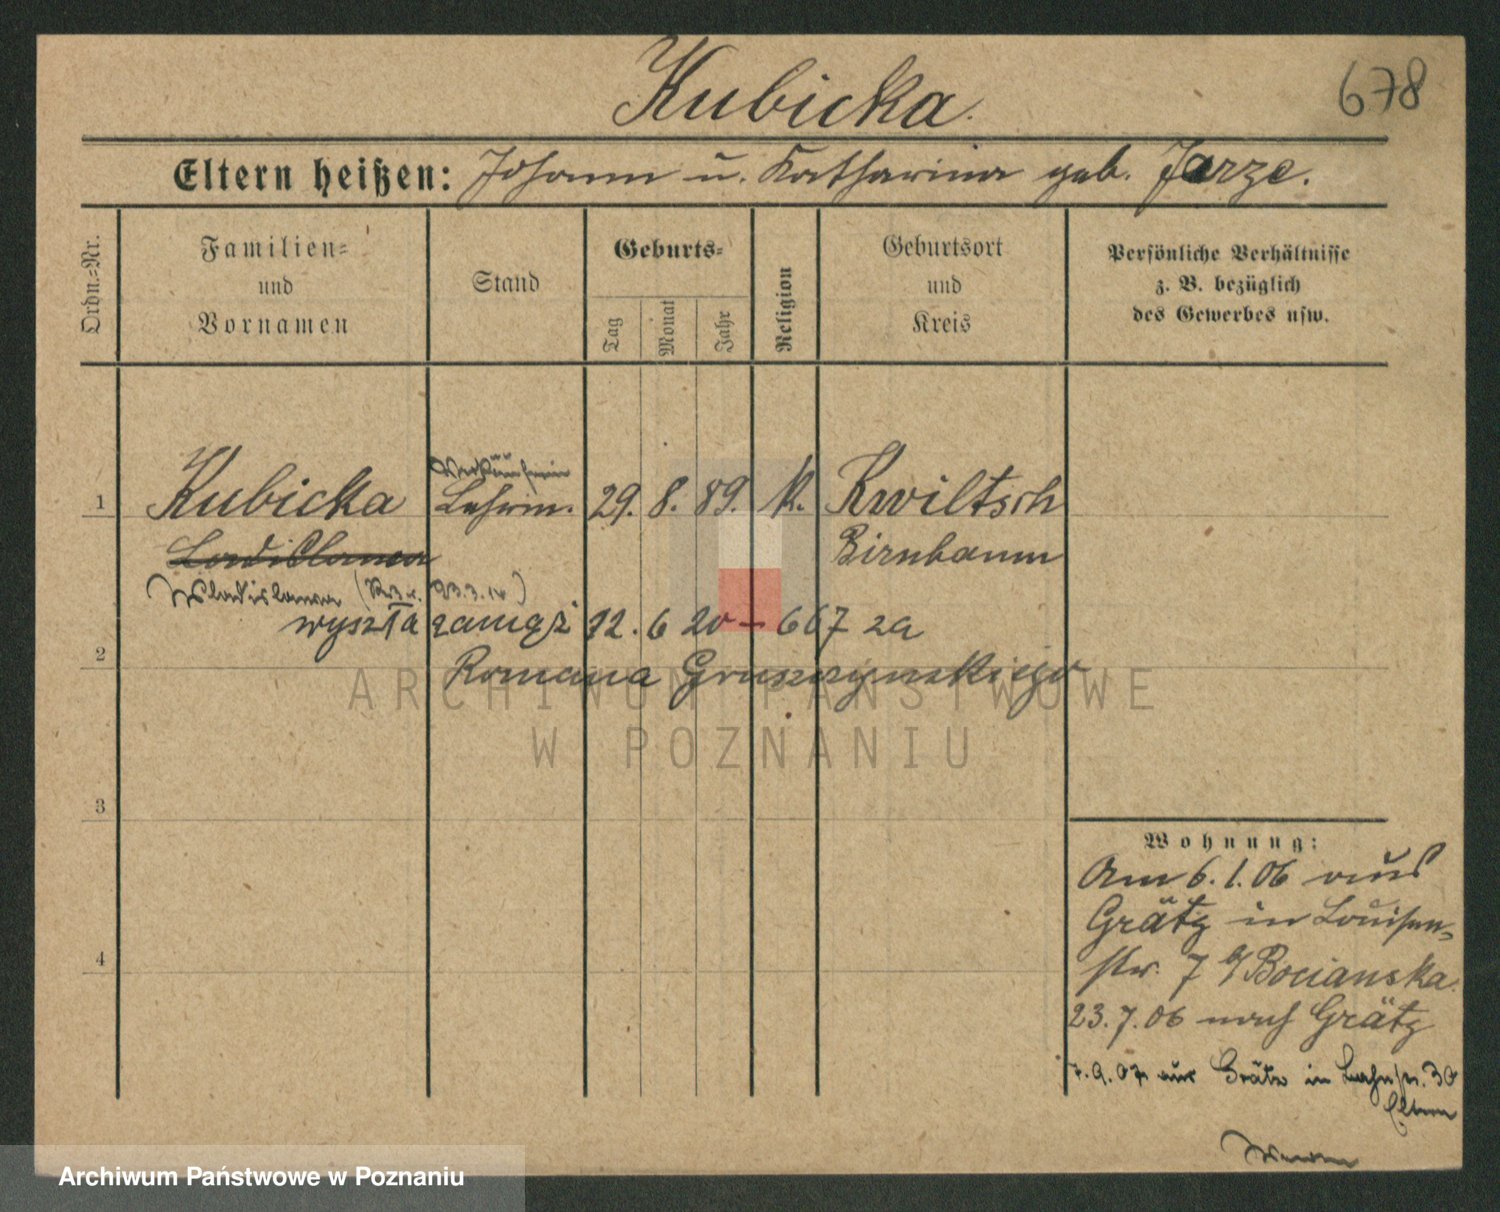 Kubicka.
678
Eltern heißen: Johann u. Katharina geb. Jarze.
Ordn.=Nr.
Familien=
und
Vornamen
Stand
Geburts=
Tag
Monat
Jahr
Religion
Geburtsort
und
Kreis
Persönliche Verhältnisse
z. B. bezüglich
des Gewerbes usw.
Verkäuferin
1 Kubicka Lehrin. 29. 8. 89. k. Kwiltsch
Birnbaum
Wladislawa
wyszła zamąż 12. 6 20 – 667 za
2
Romana Gruszczynskiego
3
4
Wohnung:
Am 6.1.06 aus
Grätz in Louisen=
str. 7 b/Bocianska.
23.7.06 nach Grätz
7.9.07 aus Grätz in 30
Eltern
ARCHIWUM PAŃSTWOWE
W POZNANIU
Archiwum Państwowe w Poznaniu